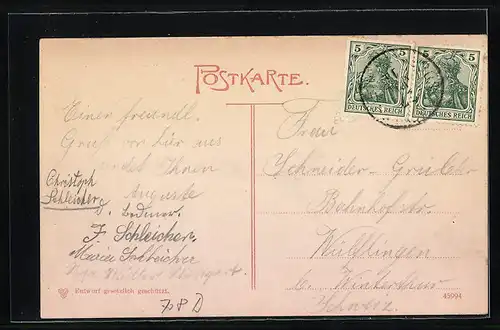 POSTKARTE.
5
DEUTSCHES REICH
5
DEUTSCHES REICH
Einen freundl.
Gruss von hier aus
sendet Ihnen
Auguste
Christoph
Schleicher
J. Schleicher
Frau
Schneider-
Bahnhofstr.
Wülflingen
b. Winterthur
Schweiz.
Entwurf gesetzlich geschützt.
45994